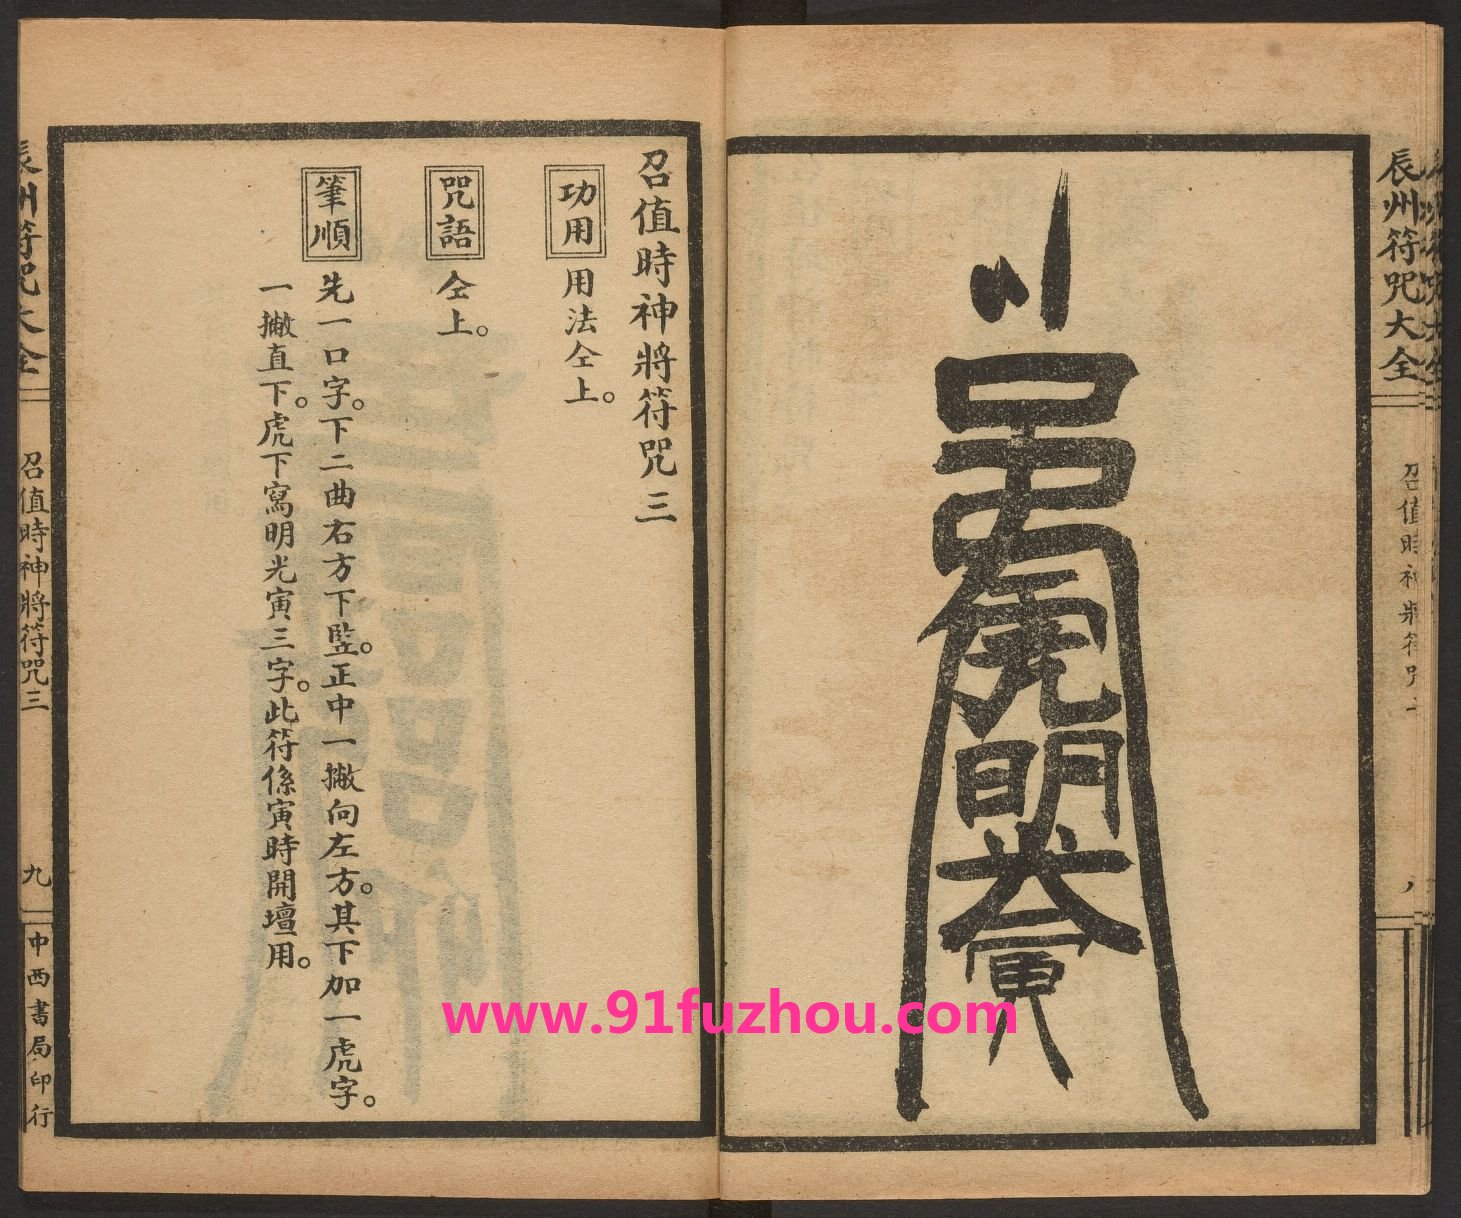 辰州符咒大全
召值時神將符咒
明
寅
召值時神將符咒三
功用
用法仝上。
咒語
仝上。
筆順
先一口字。下二曲右方下竪。正中一撇向左方。其下加一虎字。
一撇直下。虎下寫明光寅三字。此符係寅時開壇用。
辰州符咒大全
召值時神將符咒三
九
中西書局印行
www.91fuzhou.com